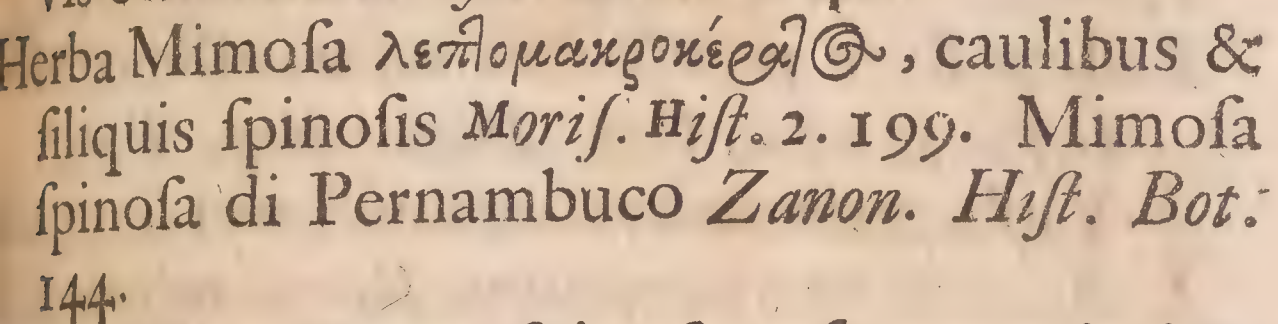 Herba Mimoſa λεπτομακροκέρατος, caulibus &
ſiliquis ſpinoſis Moriſ. Hiſt. 2. 199. Mimoſa
ſpinoſa di Pernambuco Zanon. Hiſt. Bot.
144.